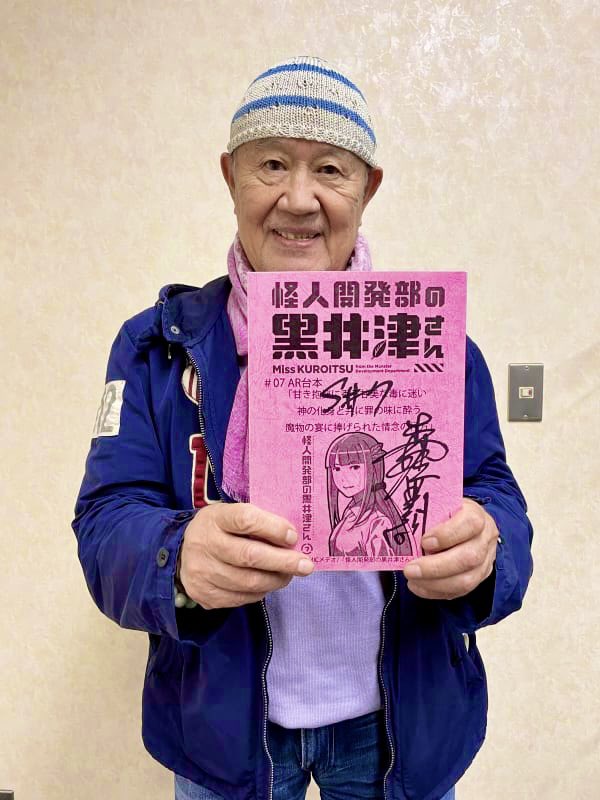 怪人開発部の
黒井津さん
Miss KUROITSU from the Monster Development Department
#07 AR台本
S#7
「甘き抱
毒に迷い
神の化身と共に罪の味に酔う
魔物の宴に捧げられた情念の
怪人開発部の黒井津さん
7
「怪人開発部の黒井津さん